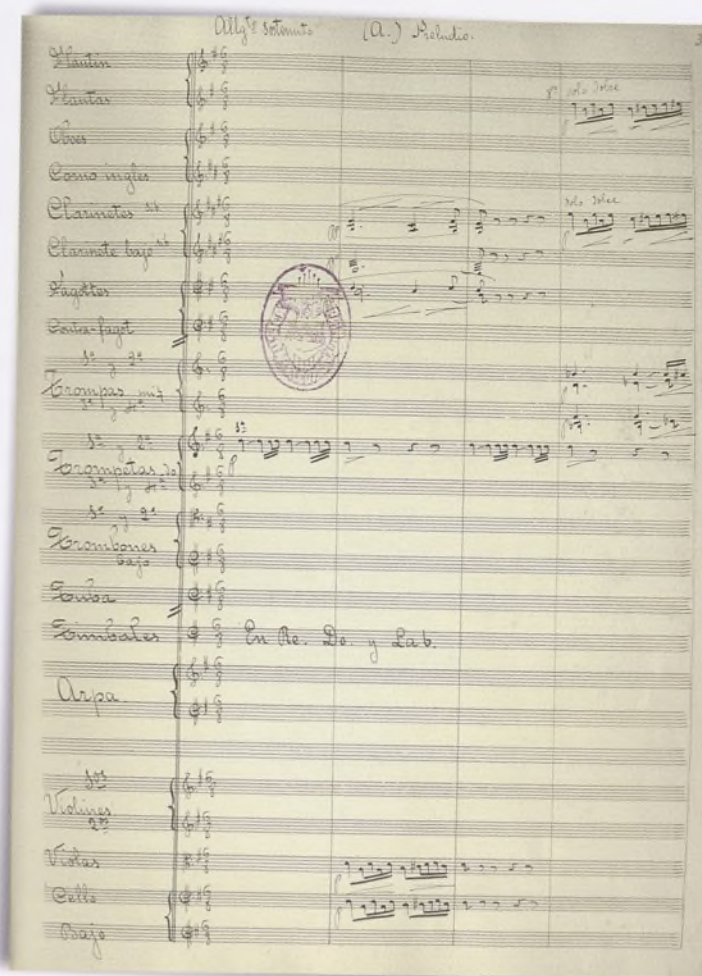 Allgtº sostenuto (A.) Preludio. 3
Flautin
Flautas
8ª solo dolce
Oboes
Corno ingles
Clarinetes sib
solo dolce
Clarinete bajo sib
Fagottes
Contra-fagot
1ª y 2ª
Trompas mi♮
3ª y 4ª
1ª y 2ª
1ª
Trompetas do
3ª y 4ª
1º y 2º
Trombones
bajo
Tuba
Timbales En Re. Do. y Lab.
Arpa.
1ros
Violines
2os
Violas
Cello
Bajo